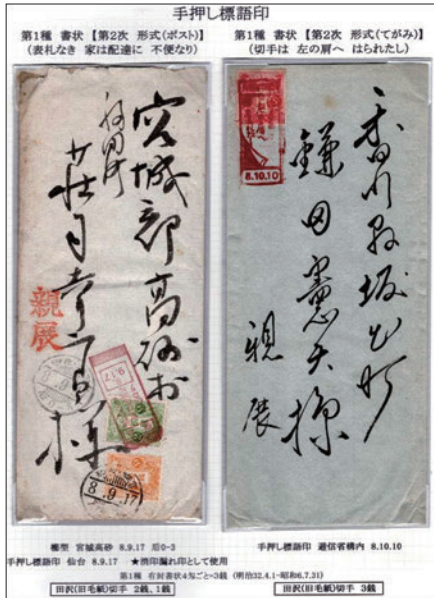 手押し標語印
第1種 書状 【第2次 形式(ポスト)】
(表札なき 家は配達に 不便なり)
第1種 書状 【第2次 形式(てがみ)】
(切手は 左の肩へ はられたし)
宮城郡高砂村
福田町
様
親展
8.9.17
8.10.10
香川県坂出町
鎌田憲夫様
親展
櫛型 宮城高砂 8.9.17 后0-3
手押し標語印 仙台 8.9.17 ★消印漏れ印として使用
手押し標語印 逓信省構内 8.10.10
第1種 有封書状4匁ごと=3銭 (明治32.4.1-昭和6.7.31)
田沢(旧毛紙)切手 2銭、1銭
田沢(旧毛紙)切手 3銭